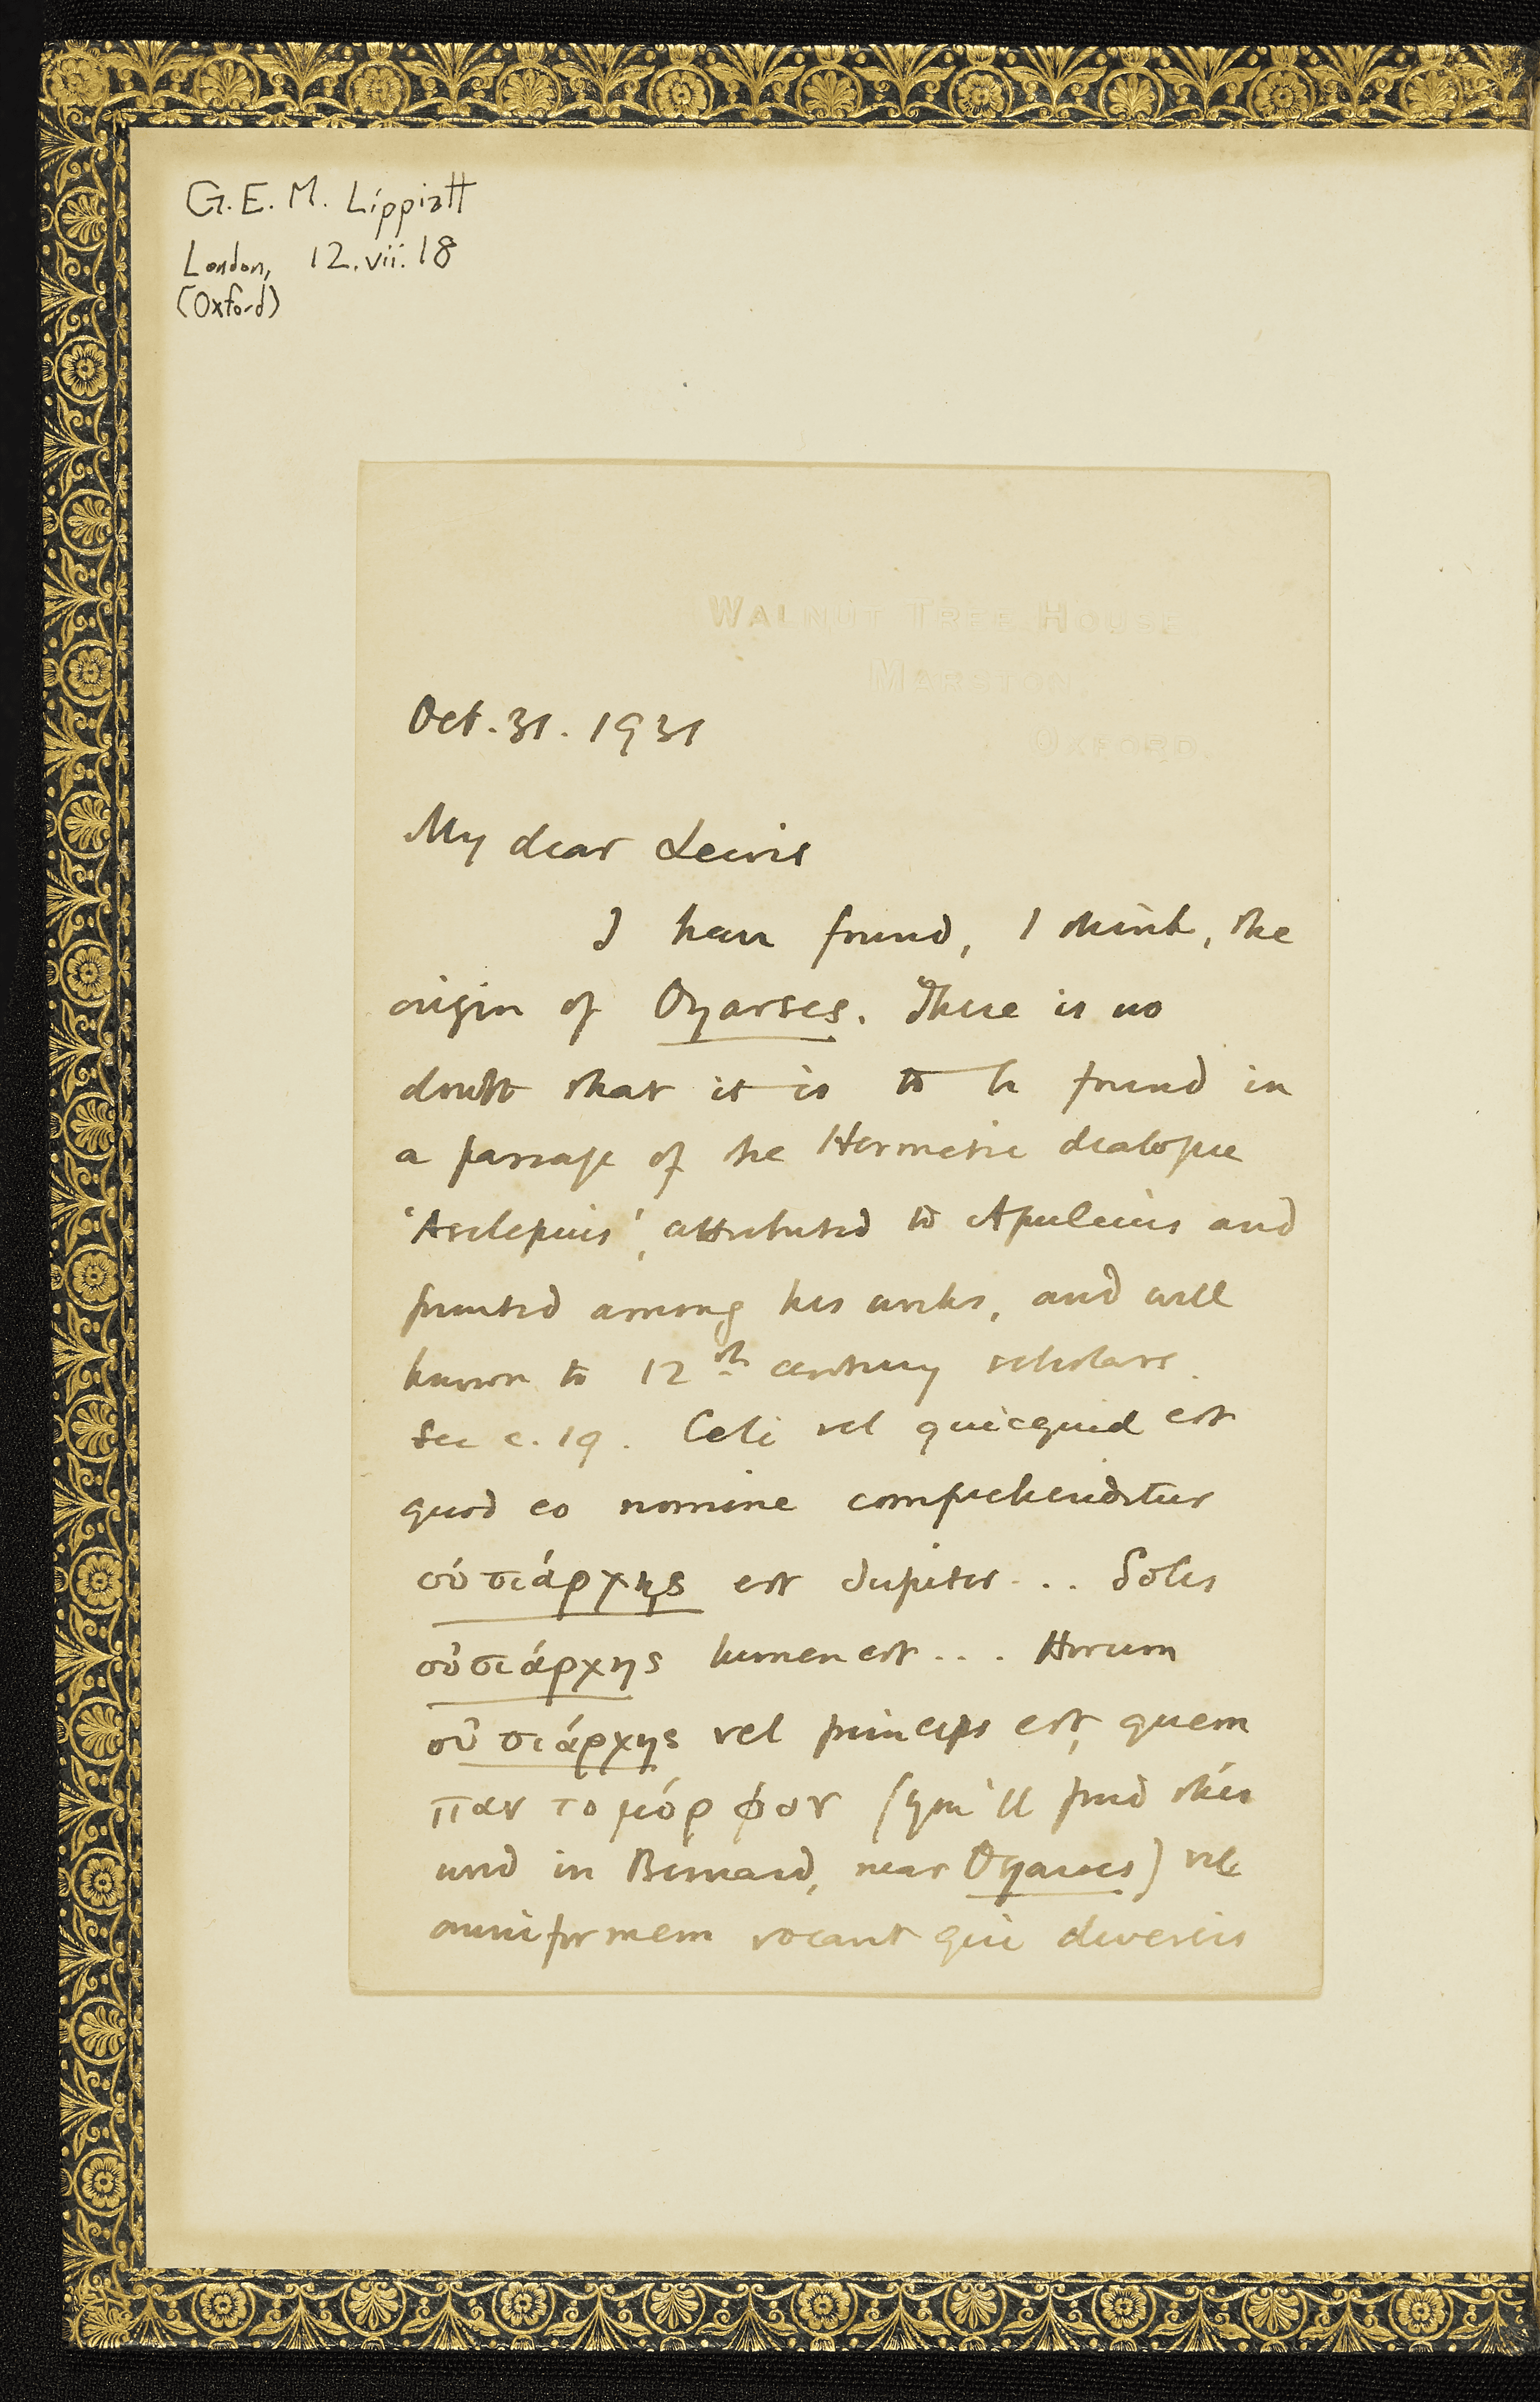 G.E.M. Lippiatt
London, 12.vii.18
(Oxford)
WALNUT TREE HOUSE,
MARSTON,
OXFORD.
Oct. 31. 1931
My dear Lewis
I have found, I think, the
origin of Oyarses. There is no
doubt that it is to be found in
a passage of the Hermetic dialogue
'Asclepius', attributed to Apuleius and
printed among his works, and well
known to 12th century scholars.
See c. 19. Celi vel quicquid est
quod eo nomine comprehenditur
οὐσιάρχης est Jupiter... Solis
οὐσιάρχης lumen est... Horum
οὐσιάρχης vel princeps est, quem
παντομόρφον (you'll find this
word in Bernard, near Oyarses) vel
omniformem vocant qui diversis